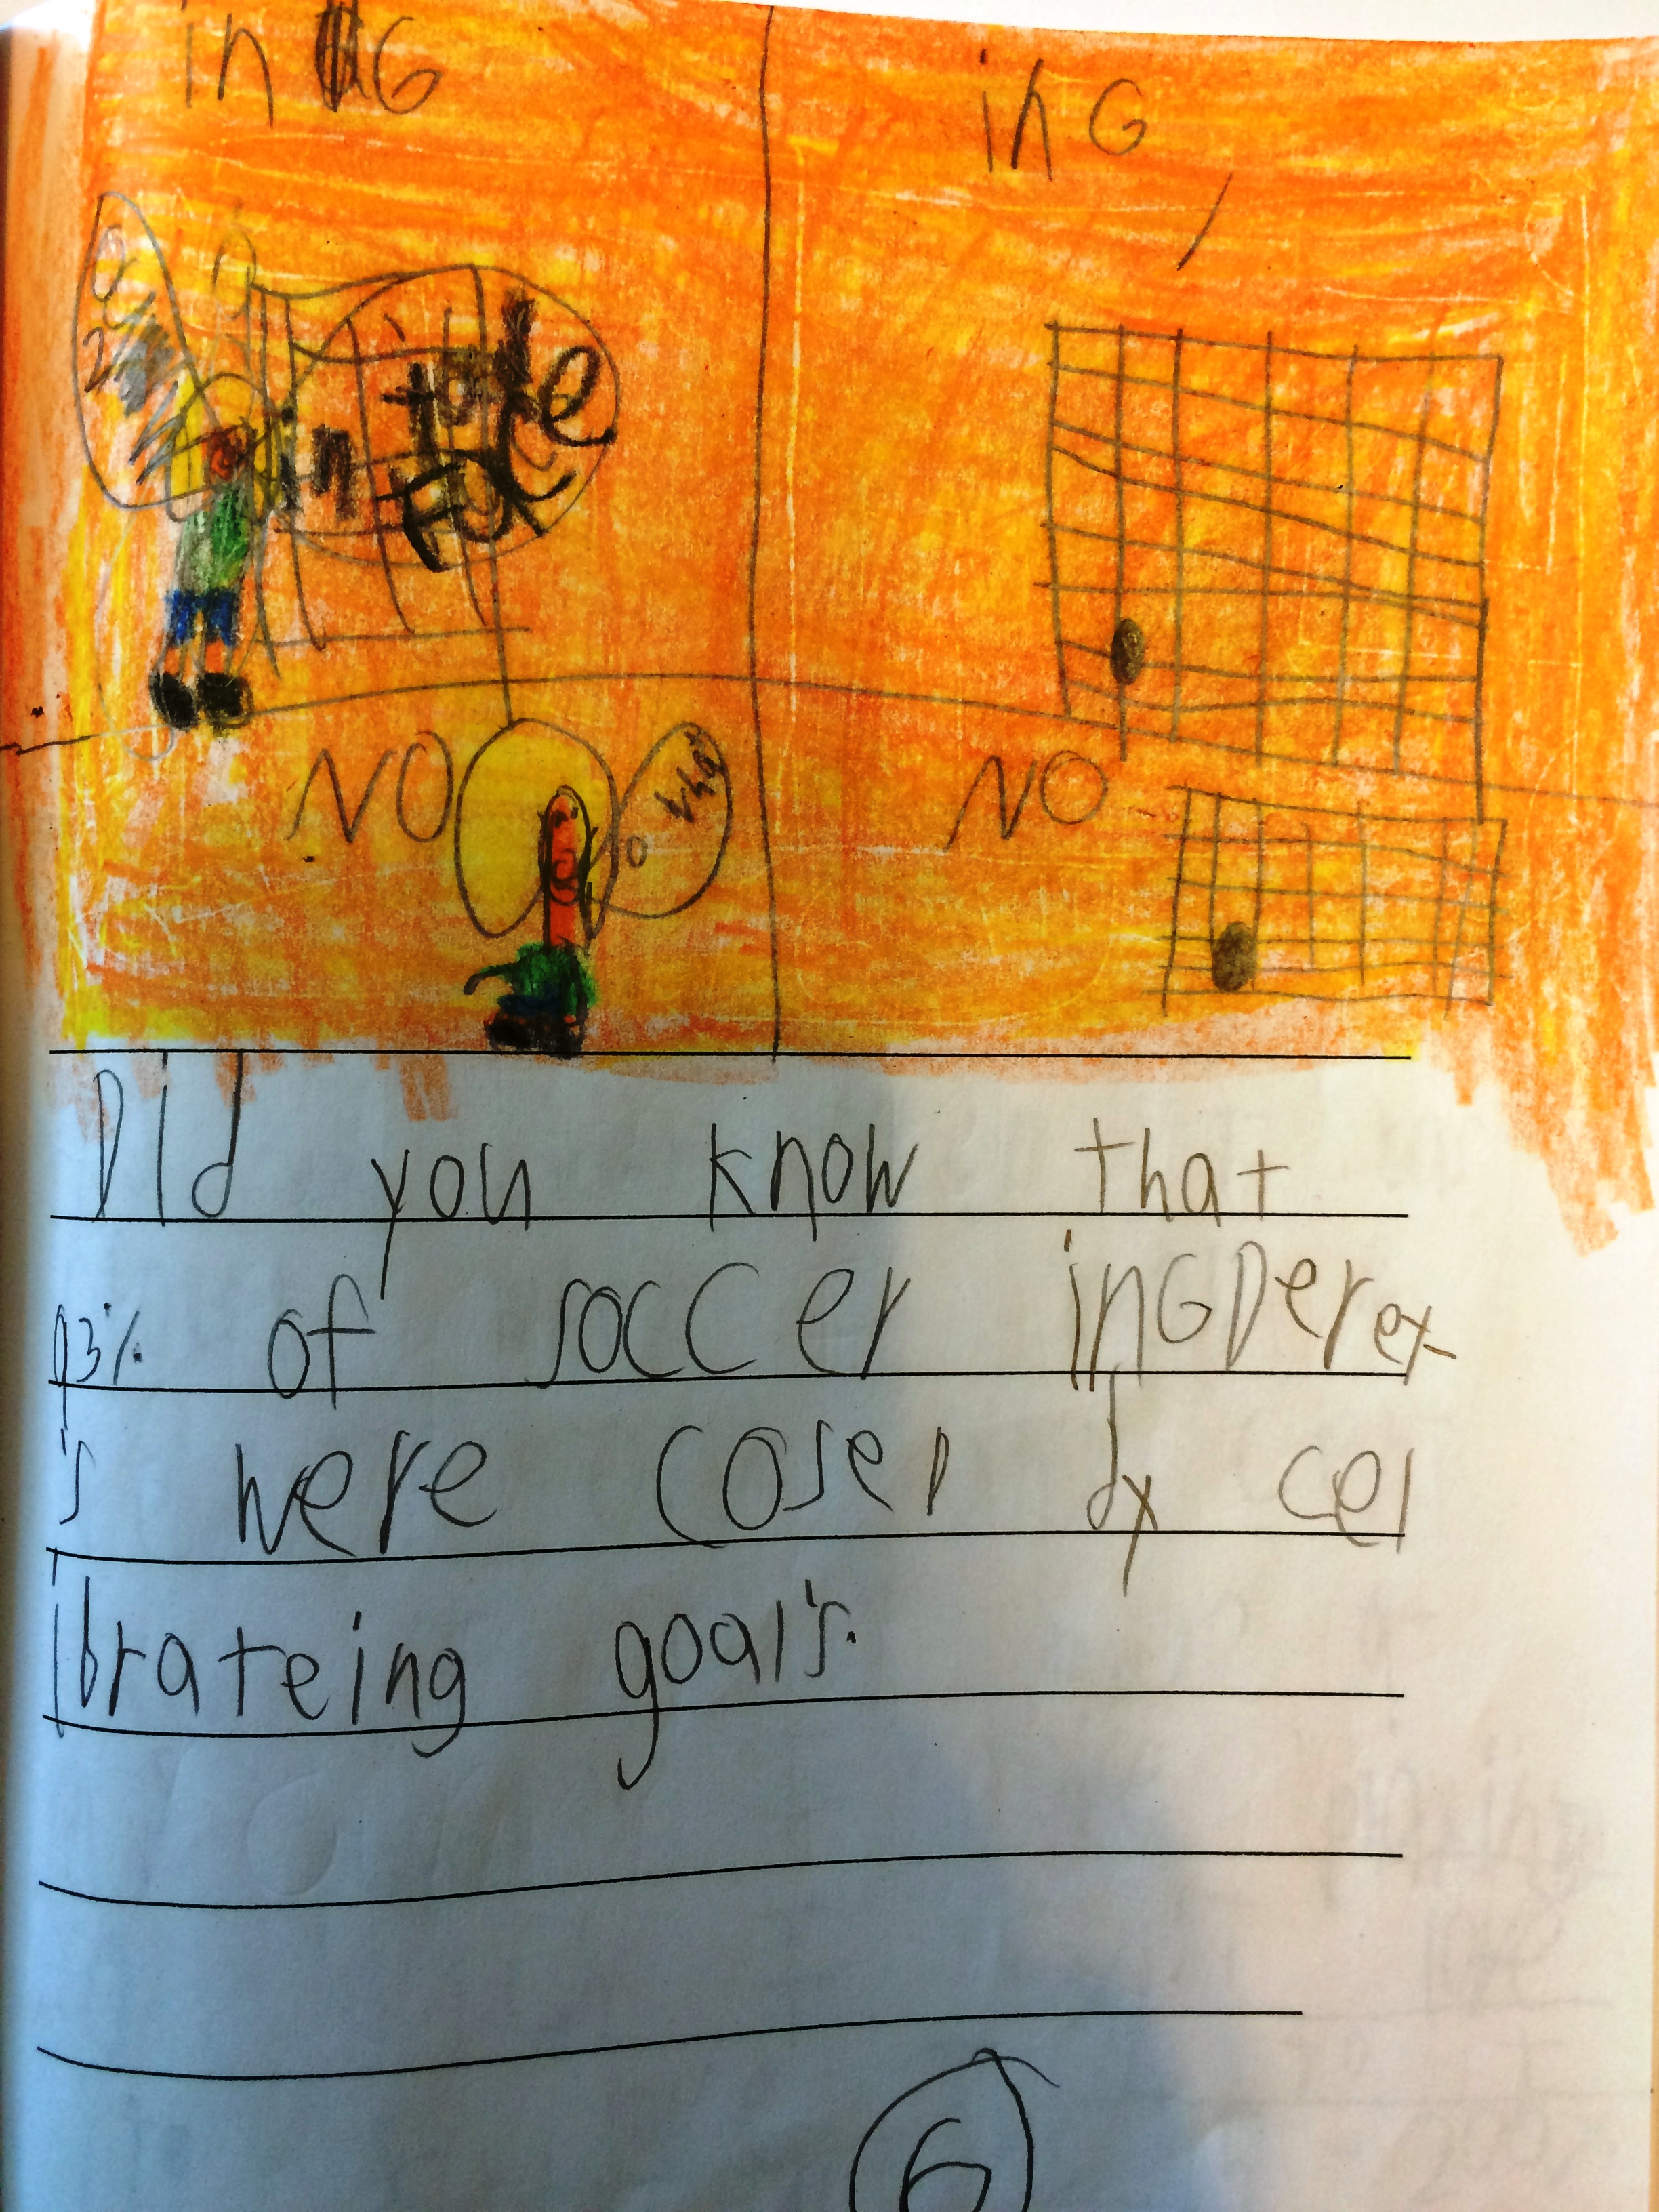 in G
in G
in
FACE
NO
NO
Did you know that
93% of soccer inGDerex
's were cosed by cel
lbrateing goal's.
6